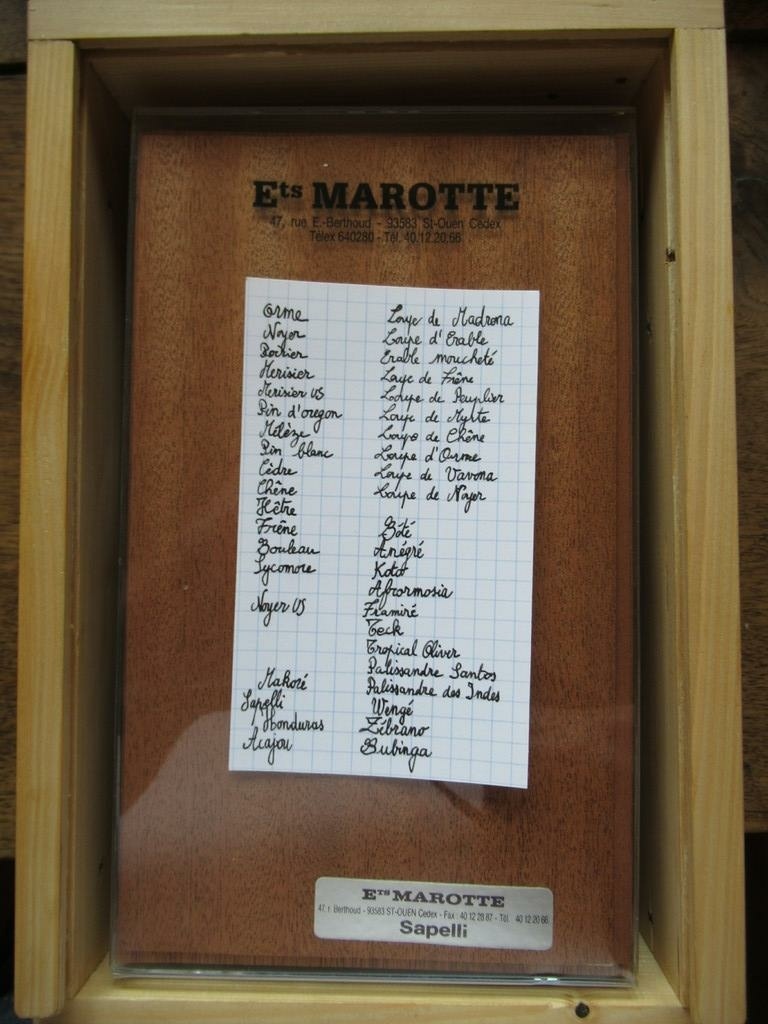 Ets MAROTTE
47, rue E.-Berthoud - 93583 St-Ouen Cedex
Télex 640280 - Tél. 40.12.20.66
Orme
Noyer
Poirier
Merisier
Merisier US
Pin d'oregon
Mélèze
Pin blanc
Cèdre
Chêne
Hêtre
Frêne
Bouleau
Sycomore
Noyer US
Makoré
Sapelli
Honduras
Acajou
Loupe de Madrona
Loupe d'Erable
Erable moucheté
Loupe de Frêne
Loupe de Peuplier
Loupe de Myrte
Loupe de Chêne
Loupe d'Orme
Loupe de Vavona
Loupe de Noyer
Bété
Anégré
Koto
Afrormosia
Framiré
Teck
Tropical Oliver
Palissandre Santos
Palissandre des Indes
Wengé
Zébrano
Bubinga
Ets MAROTTE
47, r. Berthoud - 93583 ST-OUEN Cedex - Fax : 40 12 28 87 - Tél. 40 12 20 66
Sapelli